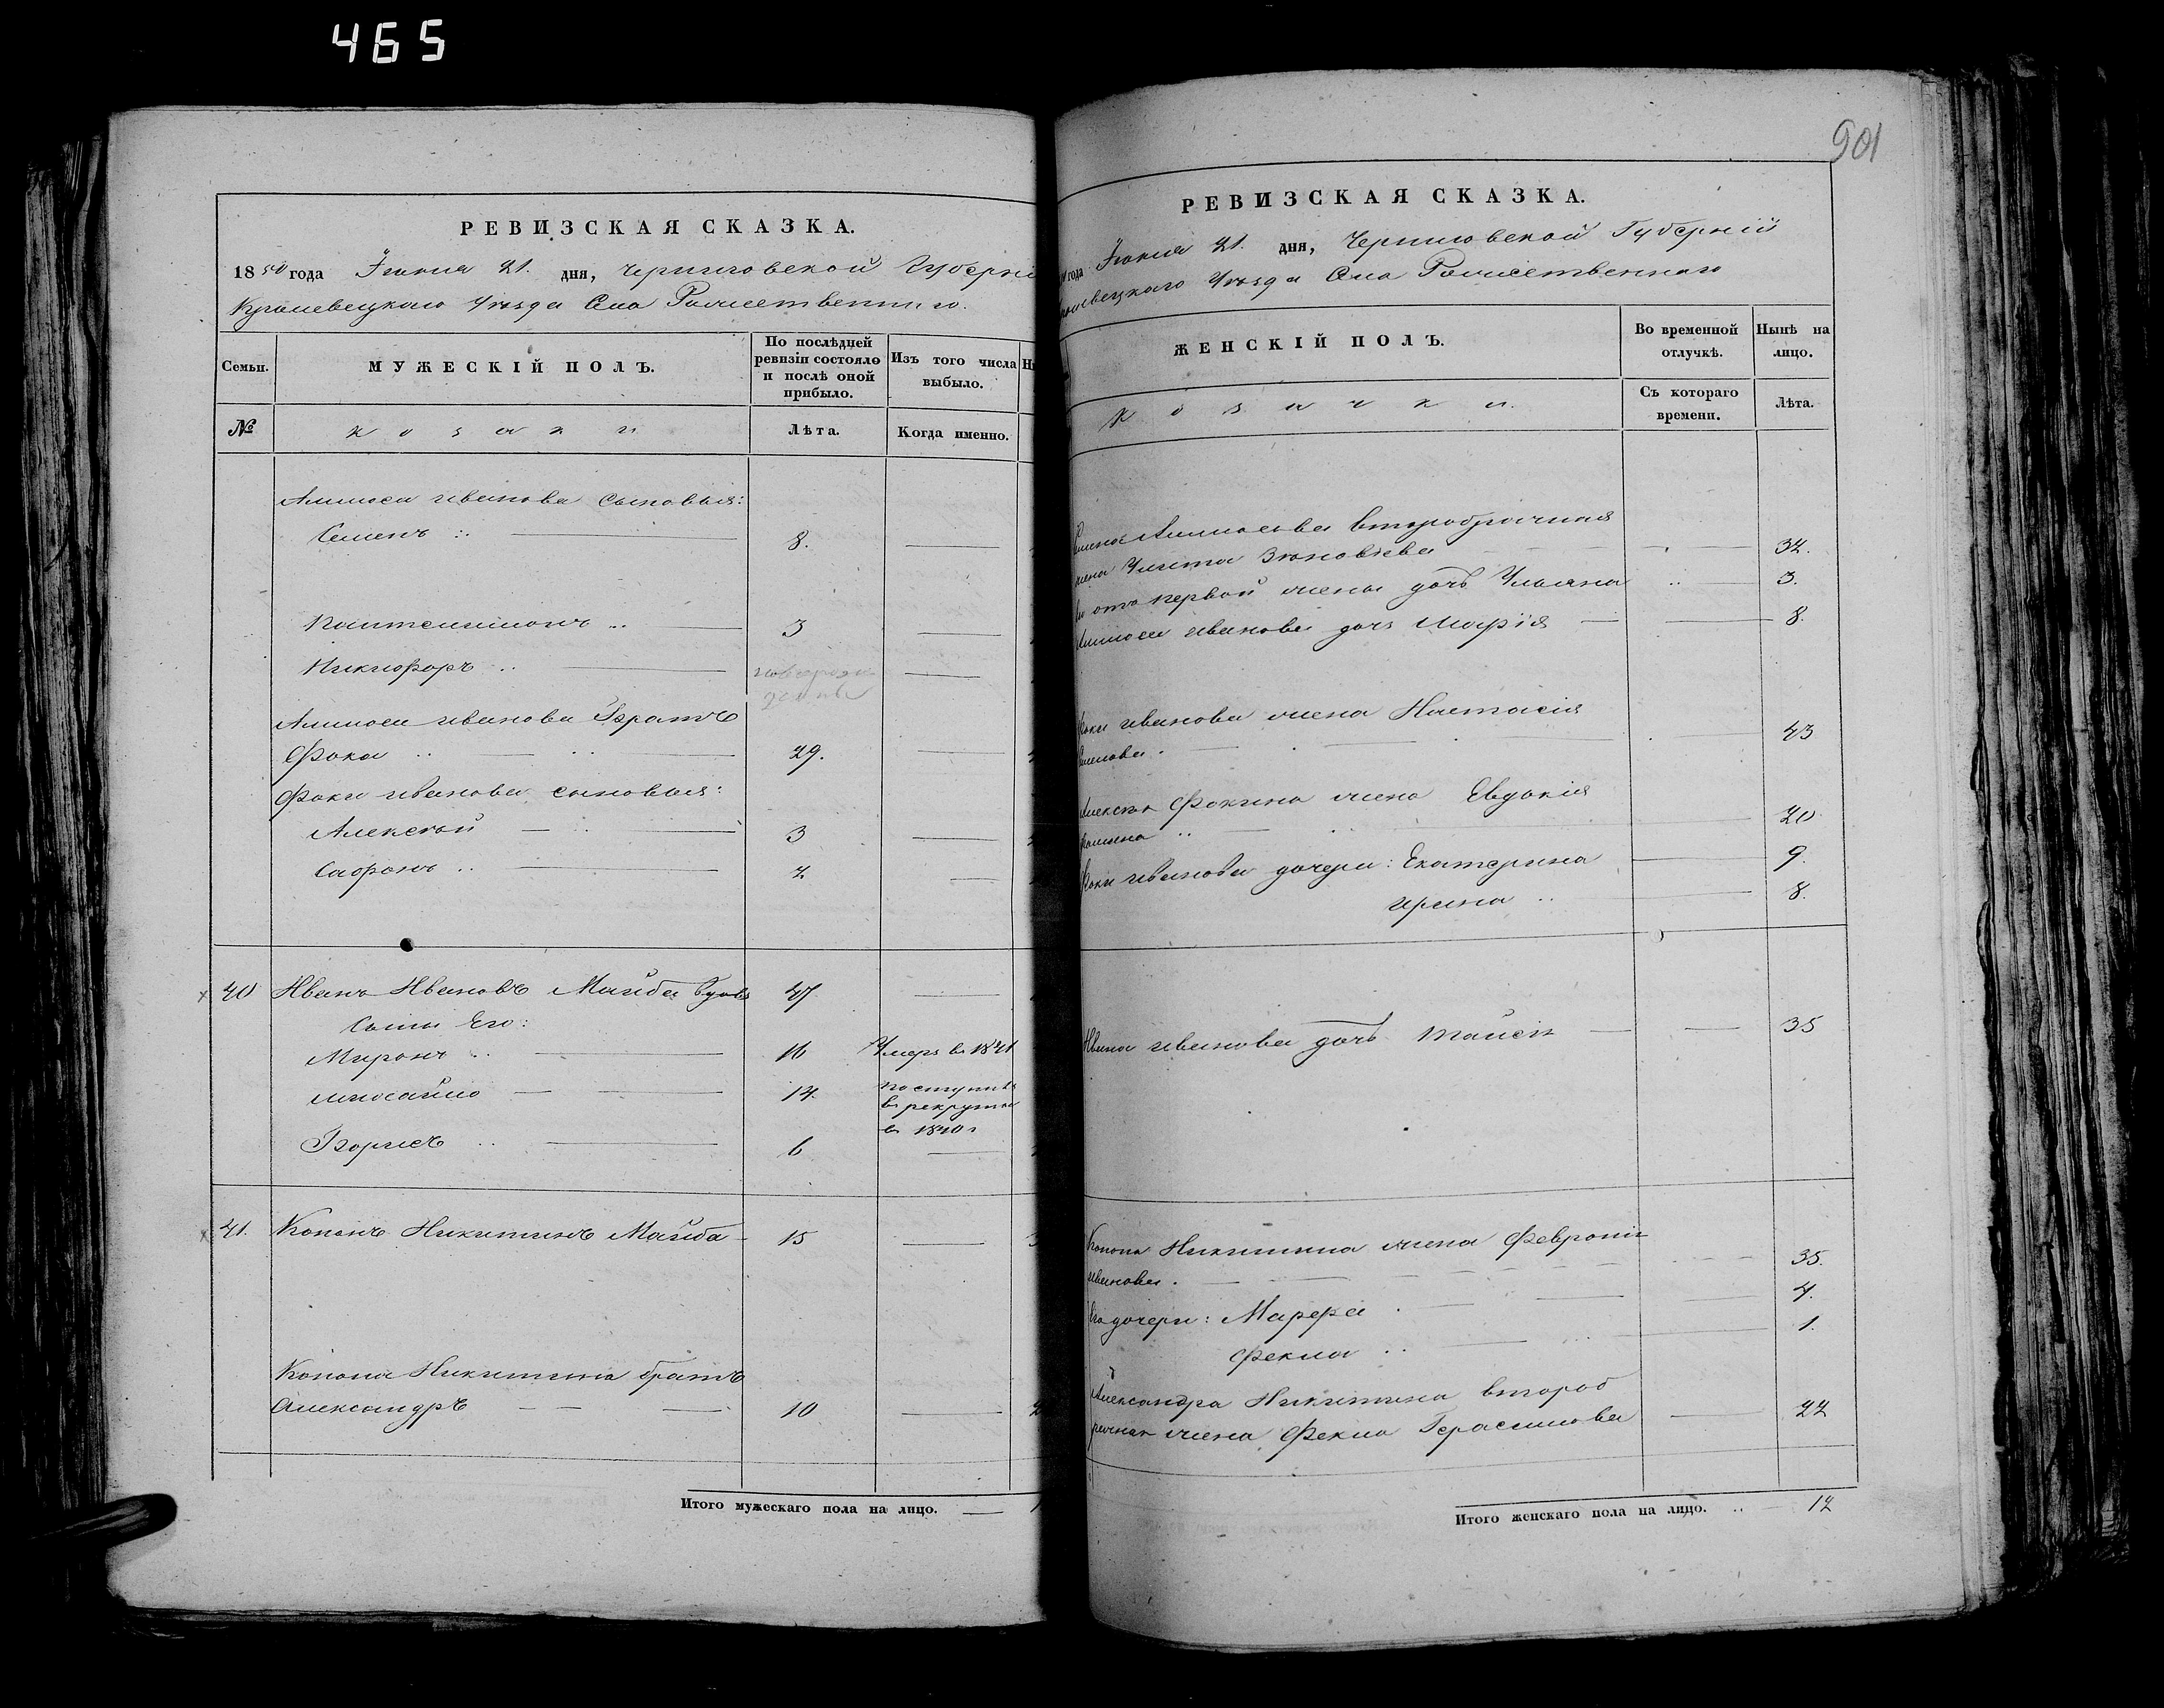 465
РЕВИЗСКАЯ СКАЗКА.
1850 года Іюня 21. дня, Черниговской Губерніи
Кролевецкаго Уѣзда Села Рожественнаго.
Семьи.
МУЖЕСКІЙ ПОЛЪ.
По послѣдней
ревизіи состояло
и послѣ оной
прибыло.
Изъ того числа
выбыло.
№
Козаки
Лѣта.
Когда именно.
Амноса Иванова Сыновья:
Семенъ 8.
Пантелимонъ 3
Никифоръ новорож
денный
Амноса Иванова Братъ
Фока 29.
Фоки Иванова сыновья:
Алексѣй 3
Сафонъ 2.
40 Иванъ Ивановъ Майба вдовъ 47
Сыны Его:
Миронъ 16 Умеръ в 1841
Мусайло 14. поступилъ
в рекруты
в 1840 г
Борисъ 6
41. Кононъ Никитинъ Майба 15
Конона Никитина братъ
Александръ 10
Итого мужескаго пола на лицо.
901
РЕВИЗСКАЯ СКАЗКА.
года Іюня 21. дня, Черниговской Губерніи
Уѣзда Села Рожественнаго
ЖЕНСКІЙ ПОЛЪ.
Во временной
отлучкѣ.
Нынѣ на
лицо.
Козачки.
Съ котораго
времени.
Лѣта.
Семена Амносова второбрачная
жена Улита Зѣновіева 32.
отъ первой жены дочь Ульяна 3.
Амноса Иванова дочь Марія 8.
Фоки Иванова жена Настасія
43
Алексѣя Фокина жена Евдокія
20
Фоки Иванова дочери: Екатерина 9.
Ирина 8.
Ивана Иванова дочь Таисія 35
Конона Никитина жена Февронія
Иванова. 35.
Его дочери: Марфа 4.
Фекла 1.
Александра Никитина второб
рачная жена Фекла Герасимова 22
Итого женскаго пола на лицо. 12